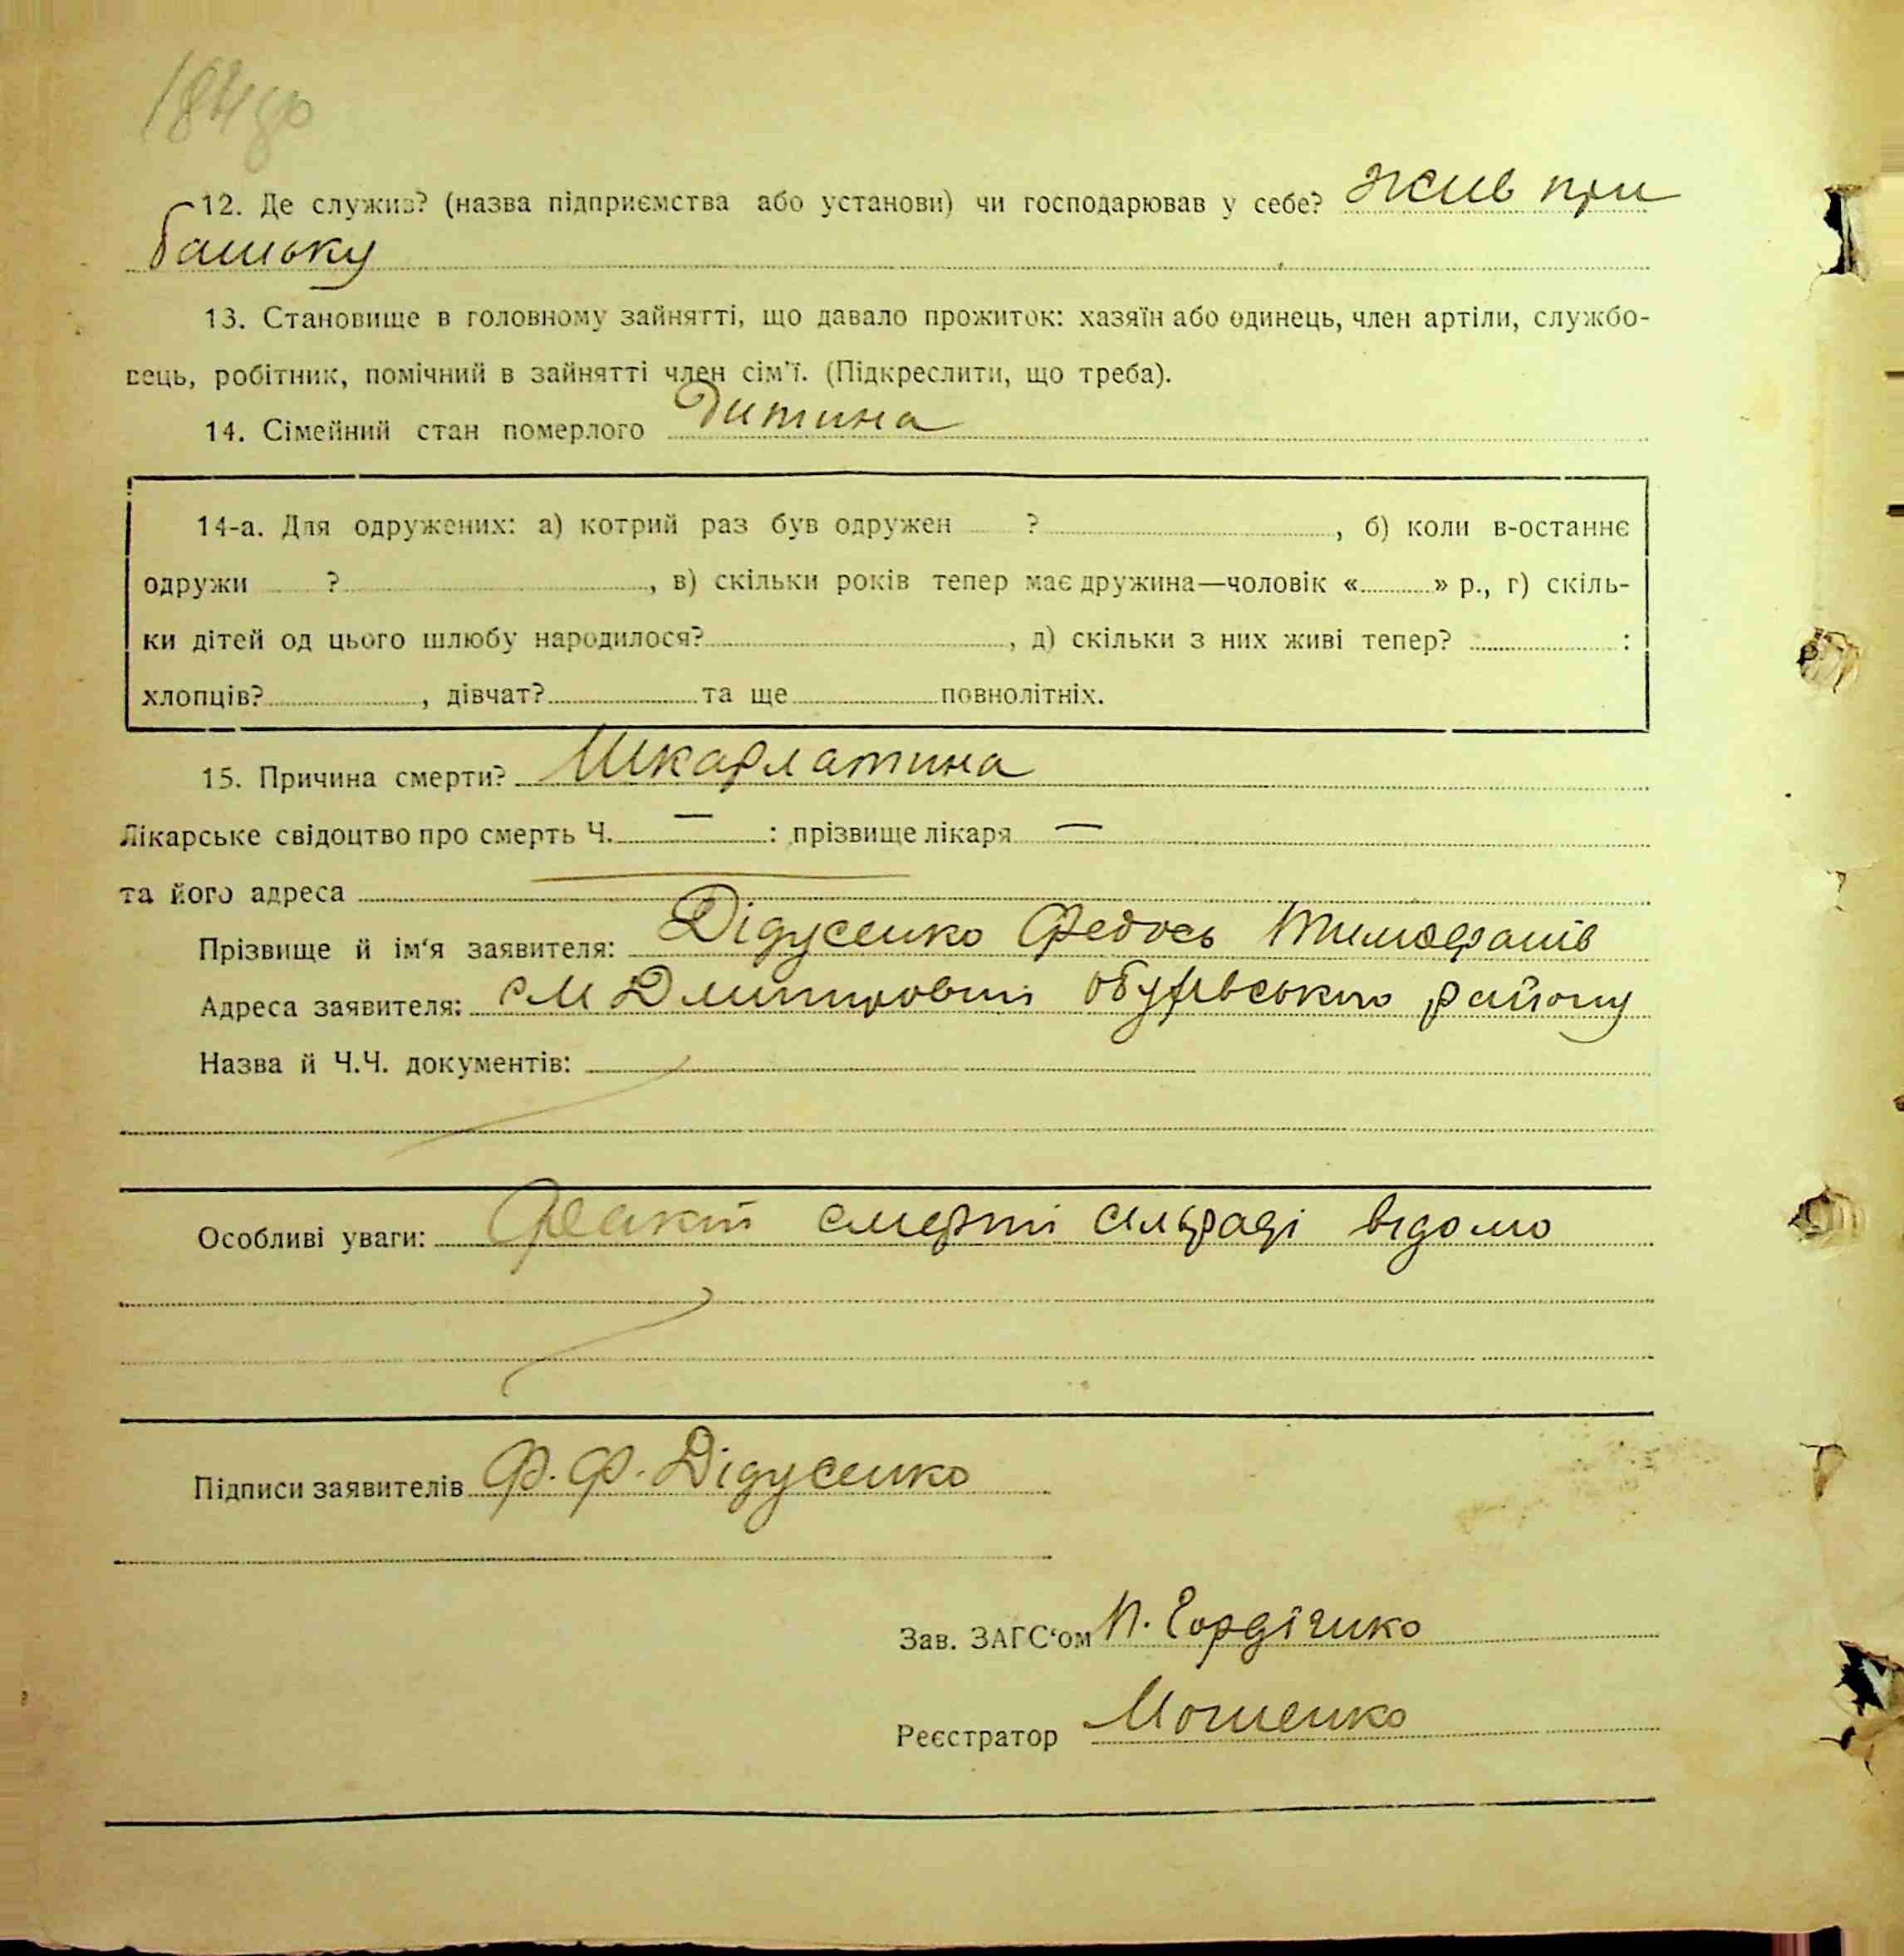 184 зв
12. Де служив? (назва підприємства або установи) чи господарював у себе? жив при
батьку
13. Становище в головному зайнятті, що давало прожиток: хазяїн або одинець, член артіли, службо-
вець, робітник, помічний в зайнятті член сім'ї. (Підкреслити, що треба).
14. Сімейний стан померлого Дитина
14-а. Для одружених: а) котрий раз був одружен ? , б) коли в-останнє
одружи ? , в) скільки років тепер має дружина—чоловік « » р., г) скіль-
ки дітей од цього шлюбу народилося? , д) скільки з них живі тепер? :
хлопців? , дівчат? та ще повнолітніх.
15. Причина смерти? Шкарлатина
Лікарське свідоцтво про смерть Ч. — : прізвище лікаря —
та його адреса
Прізвище й ім'я заявителя: Дідусенко Федось
Адреса заявителя: Обухівського району
Назва й Ч.Ч. документів:
Особливі уваги: Факт смерті сильраді відомо
Підписи заявителів Ф. Ф. Дідусенко
Зав. ЗАГС'ом
Реєстратор Мошенко